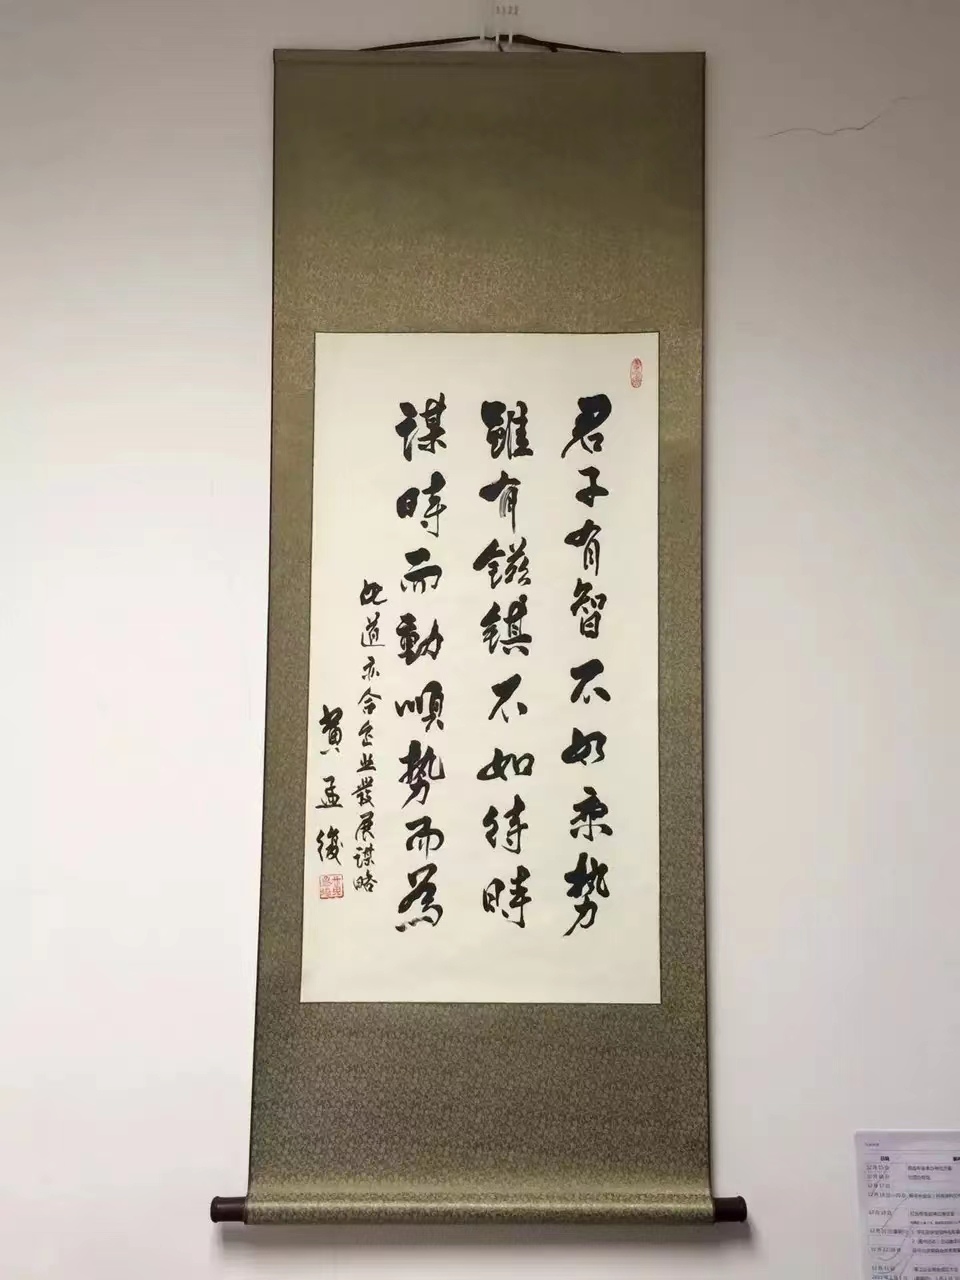 君子有智不如乘势
雖有鎡錤不如待時
謀時而動順勢而為
此道亦合企业發展謀略
黄孟復
1322